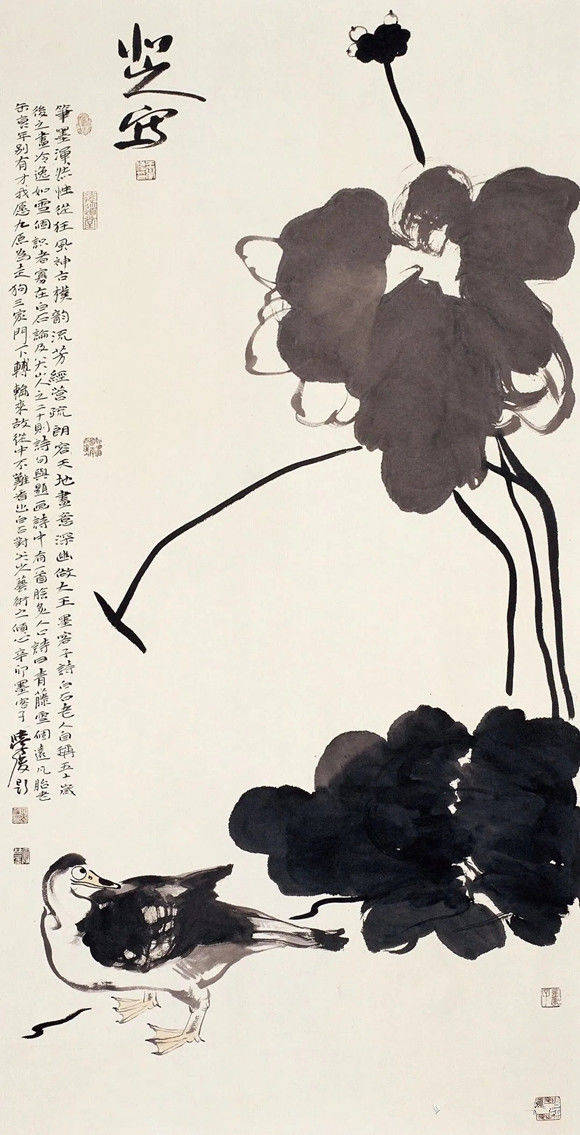 八大山人寫
筆墨渾然性從狂風神古樸韵流芳經營疏朗容天地畫意深幽做大王墨客子詩白石老人自稱五十歲
後之畫冷逸如雪個識者寡在白石論及八大山人之二十則詩句與題画詩中有一首膾炙人口詩曰青藤雪個遠凡胎老
缶衰年別有才我愿九原為走狗三家門下轉輪來故從中不難看出白石對八大藝術之傾心辛卯墨客子題